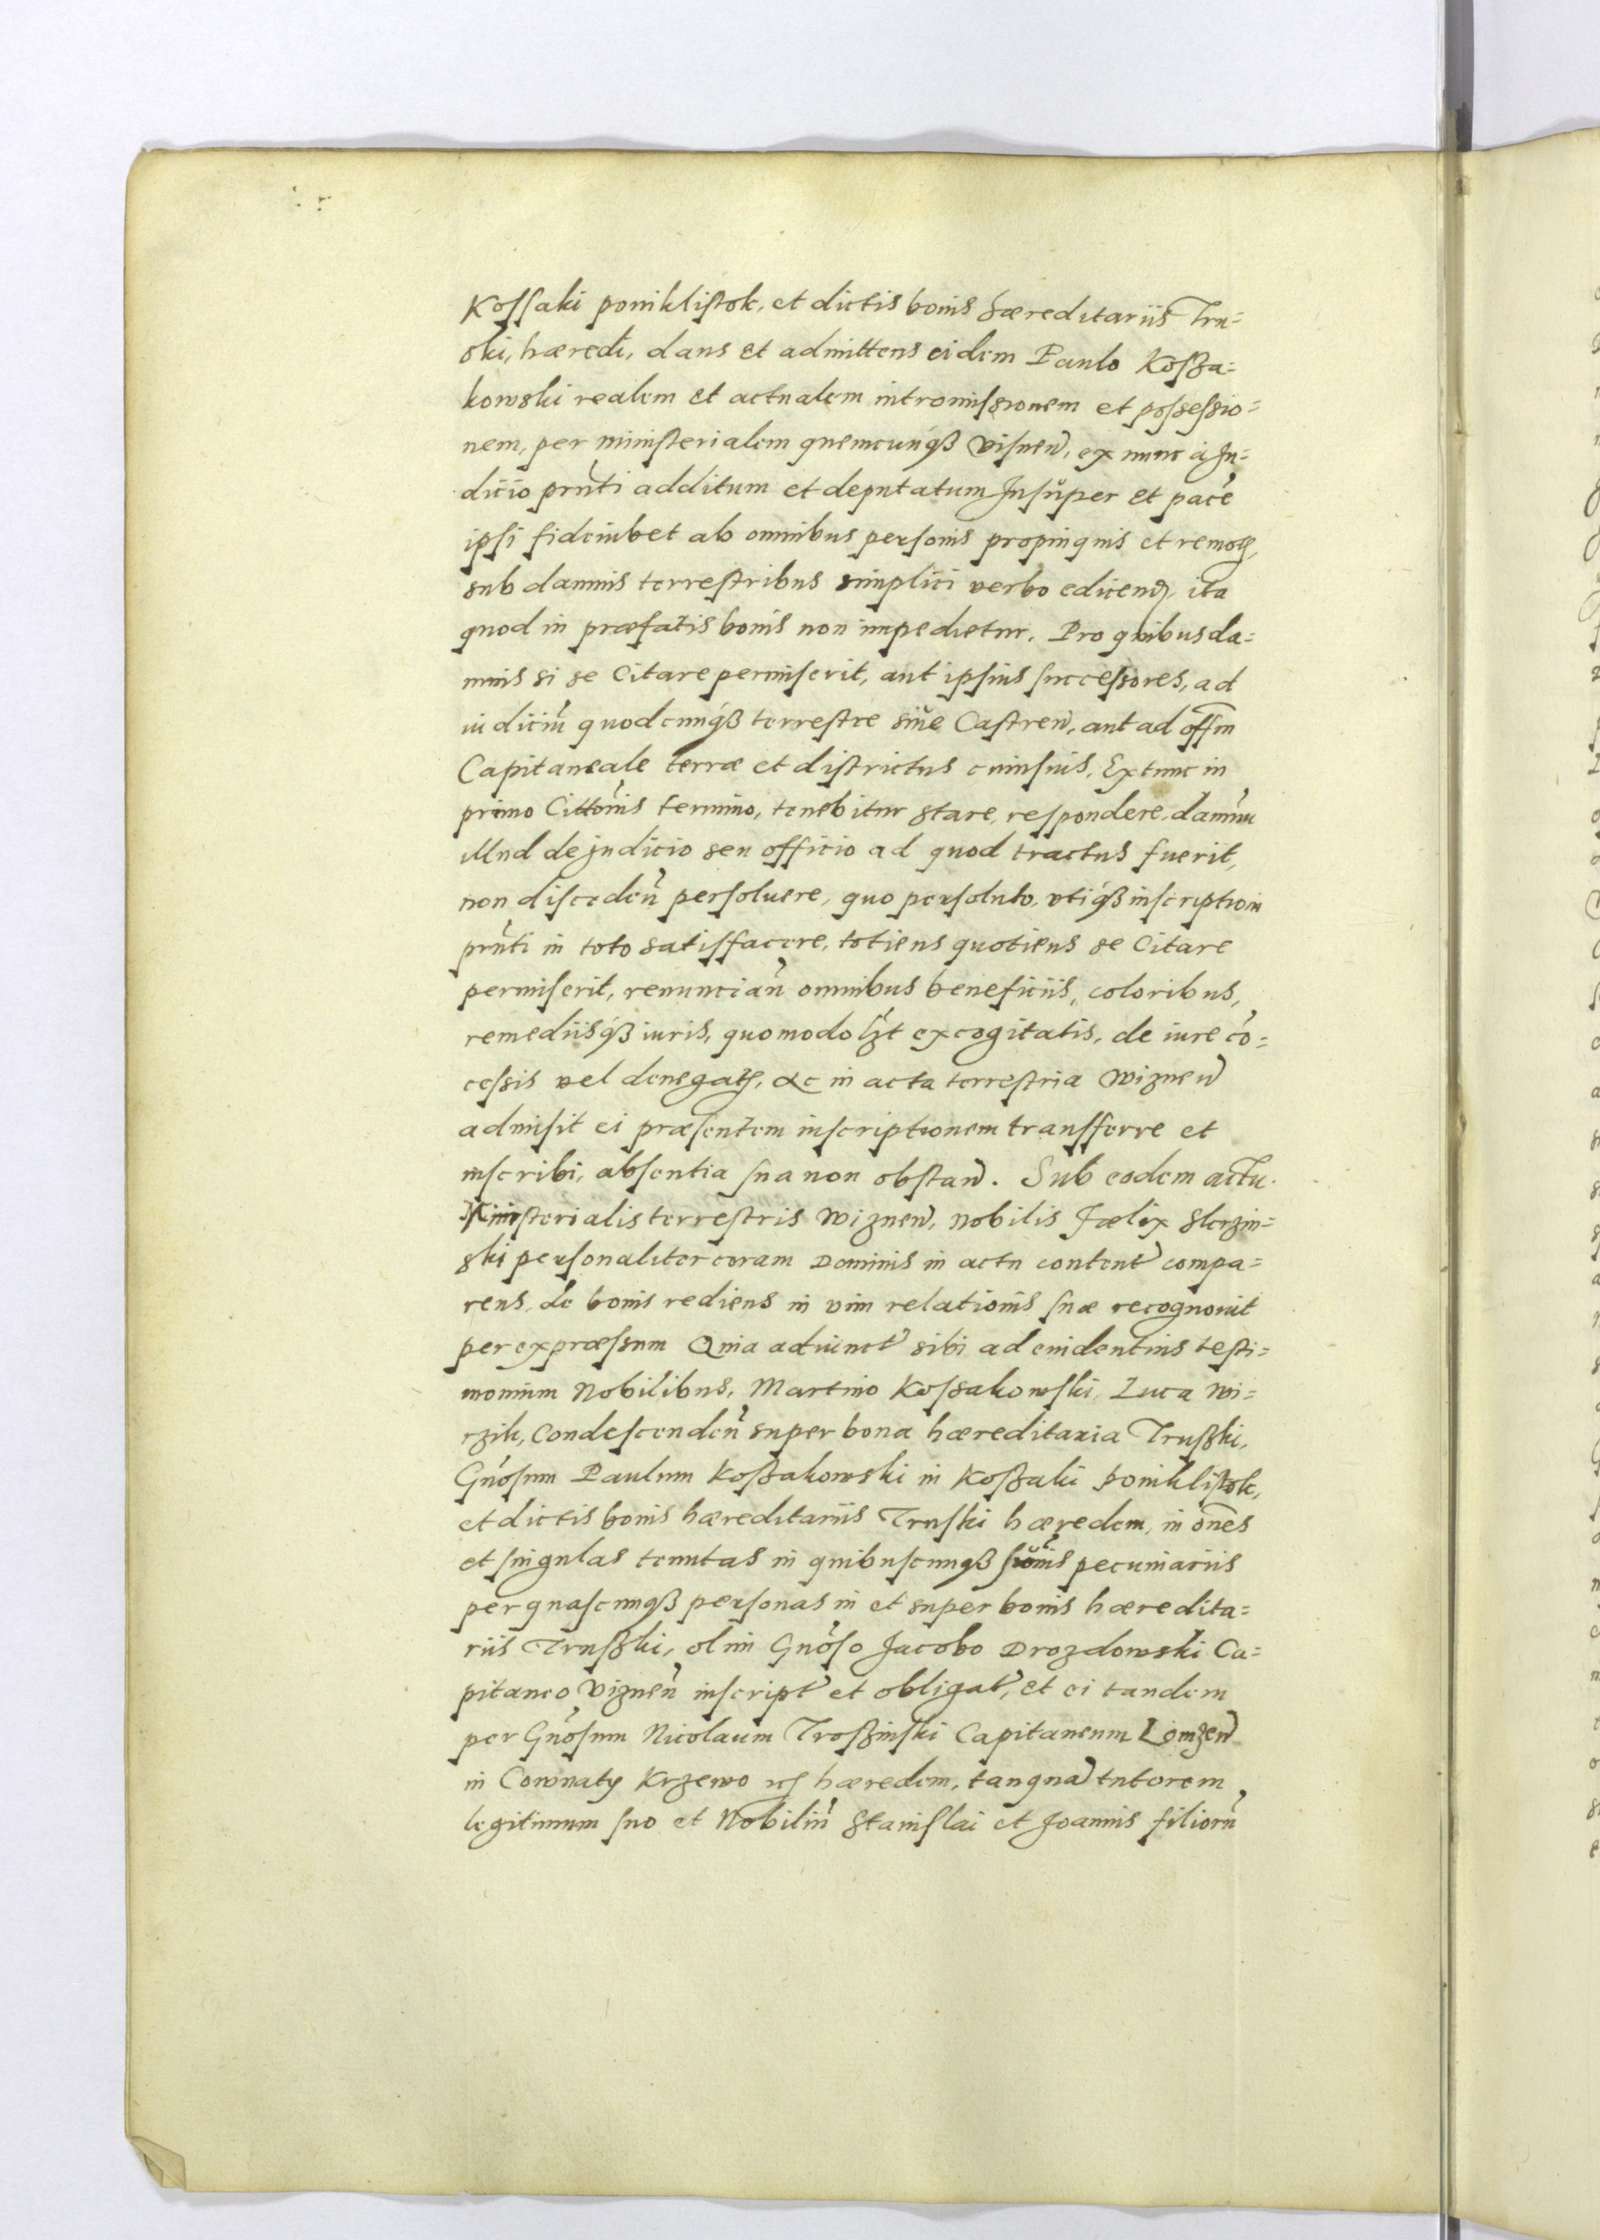 Kossaki poniklistok, et dictis bonis hæreditariis Tru=
ski, hæredi, dans et admittens eidem Paulo Kosza=
kowski realem et actualem intromissionem et possessio=
nem, per ministerialem quemcunqß visnen̄, ex nunc a Ju=
dicio prn̄ti additum et deputatum Insuper et pacē
ipsi fideiubet ab omnibus personis propinquis et remotꝭ,
sub damnis terrestribus simplici verbo edicend, ita
quod in præfatis bonis non impedietur. Pro quibus da=
mnis si se Citare permiserit, aut ipsius successores, ad
iudiciū quodcunqß terrestre siue Castren̄, aut ad offm̄
Capitaneale terræ et districtus cuiusuis, Extunc in
primo Cittonis termino, tenebitur stare, respondere, damnū
illud de judicio seu officio ad quod tractus fuerit,
non disceden̄ persoluere, quo persoluto, vtiqß inscriptioni
prn̄ti in toto satisfacere, totiens quotiens se Citare
permiserit, renuncian̄ omnibus beneficiis, coloribus,
remediisqß iuris, quomodolꝫt excogitatis, de iure cō=
cessis vel denegatꝭ, ac in acta terrestria Wiznen̄
admisit ei præsentem inscriptionem transferre et
inscribi, absentia sua non obstan̄. Sub eodem actu.
Ministerialis terrestris Wiznen̄, Nobilis Fælix Slezin=
ski personaliter coram Dominis in actu content̄ compa=
rens, de bonis rediens in vim relationis suæ recognouit
per expræssum Quia adiunct̄ sibi ad euidentius testi=
monium Nobilibus, Martino Kossakowski, Luca Wi=
rzik, Condescenden̄ super bona hæreditaria Truszki,
Gn̄osum Paulum Koszakowski in Koszaki Poniklistok,
et dictis bonis hæreditariis Truski hæredem, in on̄es
et singulas tenutas in quibuscunqß sum̄is pecuniariis
per quascunqß personas in et super bonis hæredita=
riis Truszki, olim Gn̄oso Jacobo Drozdowski Ca=
pitaneo Viznen̄ inscript̄ et obligat̄, et ei tandem
per Gn̄osum Nicolaum Troszinski Capitaneum Lomzen̄
in Cownaty Krzewo hæredem, tanquā tutorem
legitimum suo et Nobiliū Stanislai et Joannis filiorū